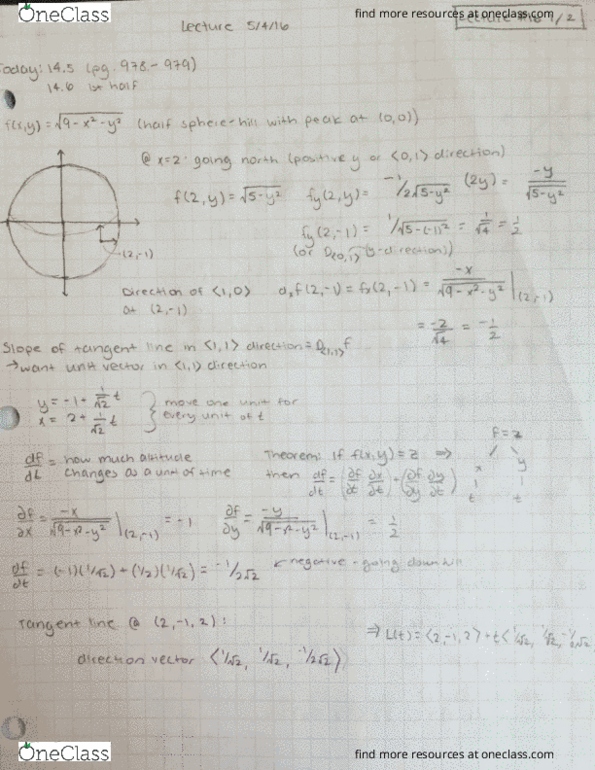 OneClass
find more resources at oneclass.com
Lecture 5/4/16
/2
Today: 14.5 (pg. 978 - 979)
14.6 1st half
f(x,y) = √9-x²-y² (half sphere-hill with peak at (0,0))
@ x=2 going north (positive y or <0,1> direction)
f(2,y) = √5-y² fy(2,y) = -1/2√5-y² (2y) = -y/√5-y²
fy(2,-1) = 1/√5-(-1)² = 1/√4 = 1/2
(or D<0,1> y-direction))
(2,-1)
Direction of <1,0> at (2,-1) d,f(2,-1) = fx(2,-1) = -x/√9-x²-y² |(2,-1)
= -2/√4 = -1/2
Slope of tangent line in <1,1> direction = D<1,1>f
→want unit vector in <1,1> direction
y = -1 + 1/√2 t
x = 2 + 1/√2 t
} move one unit for every unit of t
df/dt = how much altitude changes as a unit of time
Theorem: If f(x,y) = z ⇒
then df/dt = (∂f/∂t ∂x/∂t) + (∂f/∂y ∂y/∂t)
F = z
x y
t t
∂f/∂x = -x/√9-x²-y² |(2,-1) = -1 ∂f/∂y = -y/√9-x²-y² |(2,-1) = 1/2
df/dt = (-1)(1/√2) + (1/2)(1/√2) = -1/2√2 ← negative - going down
Tangent line @ (2,-1,2):
⇒ L(t) = <2,-1,2> + t<1/√2, 1/√2, -1/2√2
direction vector <1/√2, 1/√2, -1/2√2>
OneClass
find more resources at oneclass.com